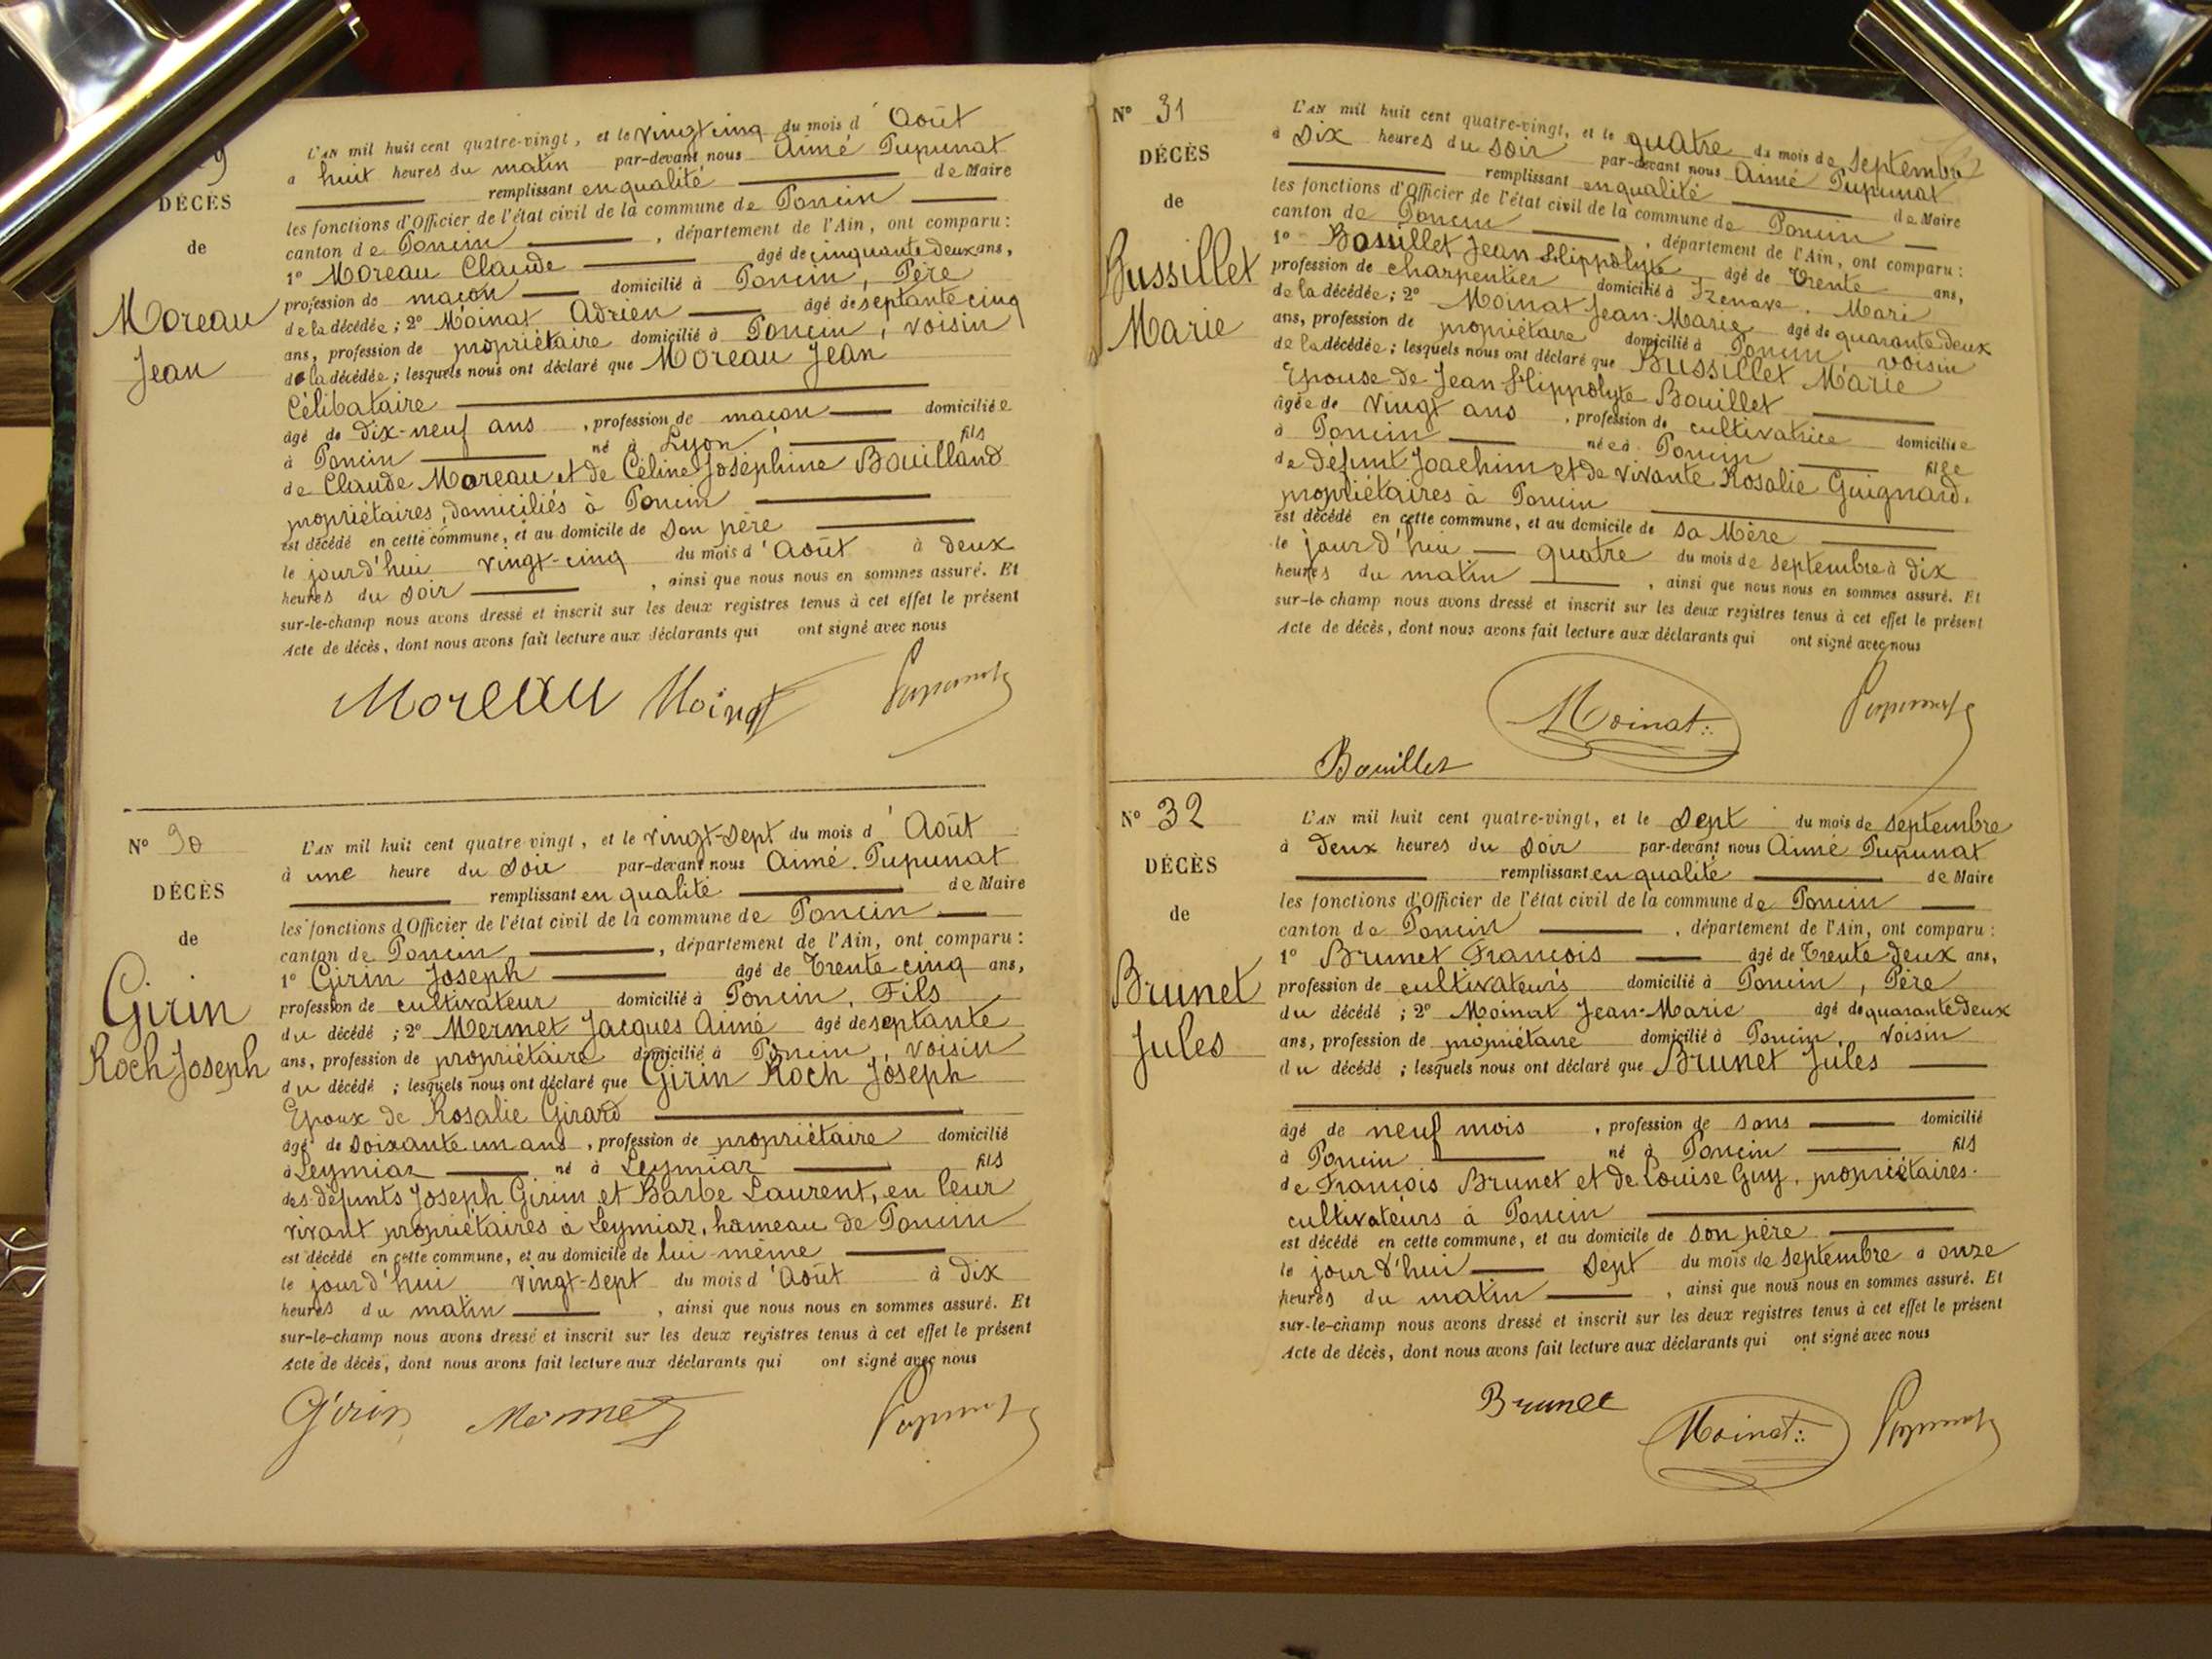 9
DÉCÈS
de
Moreau
Jean
L'AN mil huit cent quatre-vingt, et le vingt cinq du mois d'Août
à huit heures du matin par-devant nous Aimé Pupunat
remplissant en qualité de Maire
les fonctions d'Officier de l'état civil de la commune de Poncin
canton de Poncin, département de l'Ain, ont comparu :
1° Moreau Claude âgé de cinquante deux ans,
profession de maçon domicilié à Poncin, Père
de la décédée ; 2° Moinat Adrien âgé de septante cinq
ans, profession de propriétaire domicilié à Poncin, voisin
de la décédée ; lesquels nous ont déclaré que Moreau Jean
Célibataire
âgé de dix-neuf ans, profession de maçon domiciliée
à Poncin né à Lyon fils
de Claude Moreau et de Céline Joséphine Bouilland
propriétaires, domiciliés à Poncin
est décédé en cette commune, et au domicile de son père
le jourd'hui vingt-cinq du mois d'Août à deux
heures du soir, ainsi que nous nous en sommes assuré. Et
sur-le-champ nous avons dressé et inscrit sur les deux registres tenus à cet effet le présent
Acte de décès, dont nous avons fait lecture aux déclarants qui ont signé avec nous
Moreau Moinat Pupunat
N° 30
DÉCÈS
de
Girin
Roch Joseph
L'AN mil huit cent quatre-vingt, et le vingt-sept du mois d'Août
à une heure du soir par-devant nous Aimé Pupunat
remplissant en qualité de Maire
les fonctions d'Officier de l'état civil de la commune de Poncin
canton de Poncin, département de l'Ain, ont comparu :
1° Girin Joseph âgé de trente cinq ans,
profession de cultivateur domicilié à Poncin, Fils
du décédé ; 2° Mermet Jacques Aimé âgé de septante
ans, profession de propriétaire domicilié à Poncin, voisin
du décédé ; lesquels nous ont déclaré que Girin Roch Joseph
Epoux de Rosalie Girard
âgé de soixante un ans, profession de propriétaire domicilié
à Leymiaz né à Leymiaz fils
des défunts Joseph Girin et Barbe Laurent, en leur
vivant propriétaires à Leymiaz, hameau de Poncin
est décédé en cette commune, et au domicile de lui-même
le jourd'hui vingt-sept du mois d'Août à dix
heures du matin, ainsi que nous nous en sommes assuré. Et
sur-le-champ nous avons dressé et inscrit sur les deux registres tenus à cet effet le présent
Acte de décès, dont nous avons fait lecture aux déclarants qui ont signé avec nous
Girin Mermet Pupunat
N° 31
DÉCÈS
de
Bussillet
Marie
L'AN mil huit cent quatre-vingt, et le quatre du mois de septembre
à dix heures du soir par-devant nous Aimé Pupunat
remplissant en qualité de Maire
les fonctions d'Officier de l'état civil de la commune de Poncin
canton de Poncin, département de l'Ain, ont comparu :
1° Bouillet Jean Hippolyte, âgé de trente ans,
profession de charpentier domicilié à Izenave, Mari
de la décédée ; 2° Moinat Jean-Marie âgé de quarante deux
ans, profession de propriétaire domicilié à Poncin voisin
de la décédée ; lesquels nous ont déclaré que Bussillet Marie
Epouse de Jean Hippolyte Bouillet
âgée de vingt ans, profession de cultivatrice domiciliée
à Poncin née à Poncin fille
de défunt Joachim et de vivante Rosalie Guignard,
propriétaires à Poncin
est décédé en cette commune, et au domicile de sa Mère
le jourd'hui quatre du mois de septembre à dix
heures du matin, ainsi que nous nous en sommes assuré. Et
sur-le-champ nous avons dressé et inscrit sur les deux registres tenus à cet effet le présent
Acte de décès, dont nous avons fait lecture aux déclarants qui ont signé avec nous
Moinat Pupunat
Bouillet
N° 32
DÉCÈS
de
Brunet
Jules
L'AN mil huit cent quatre-vingt, et le sept du mois de septembre
à deux heures du soir par-devant nous Aimé Pupunat
remplissant en qualité de Maire
les fonctions d'Officier de l'état civil de la commune de Poncin
canton de Poncin, département de l'Ain, ont comparu :
1° Brunet François âgé de trente deux ans,
profession de cultivateurs domicilié à Poncin, Père
du décédé ; 2° Moinat Jean-Marie âgé de quarante deux
ans, profession de propriétaire domicilié à Poncin, voisin
du décédé ; lesquels nous ont déclaré que Brunet Jules
âgé de neuf mois, profession de sans domicilié
à Poncin né à Poncin fils
de François Brunet et de Louise Guy, propriétaires
cultivateurs à Poncin
est décédé en cette commune, et au domicile de son père
le jourd'hui sept du mois de septembre à onze
heures du matin, ainsi que nous nous en sommes assuré. Et
sur-le-champ nous avons dressé et inscrit sur les deux registres tenus à cet effet le présent
Acte de décès, dont nous avons fait lecture aux déclarants qui ont signé avec nous
Brunet Moinat Pupunat